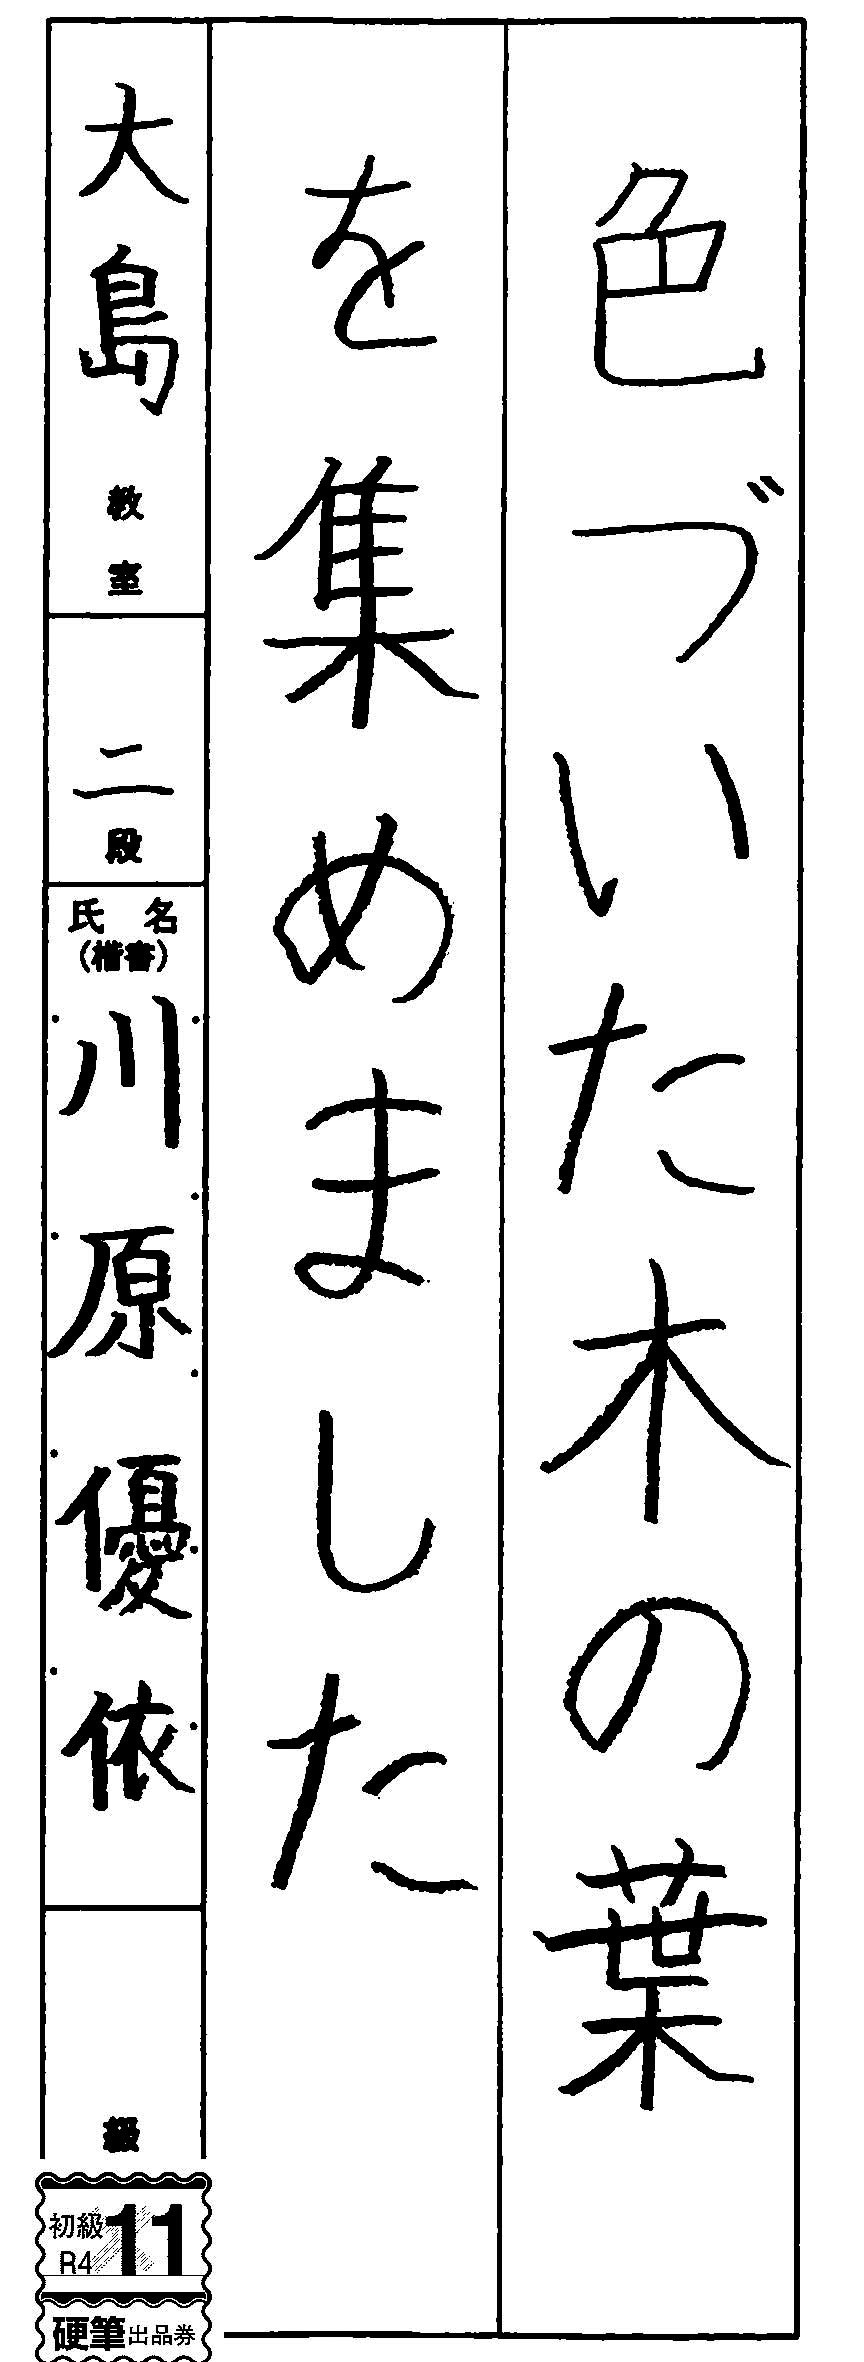 色づいた木の葉
を集めました
大島教室
二段
氏名
(楷書)
川原優依
級
初級
R4
11
硬筆出品券